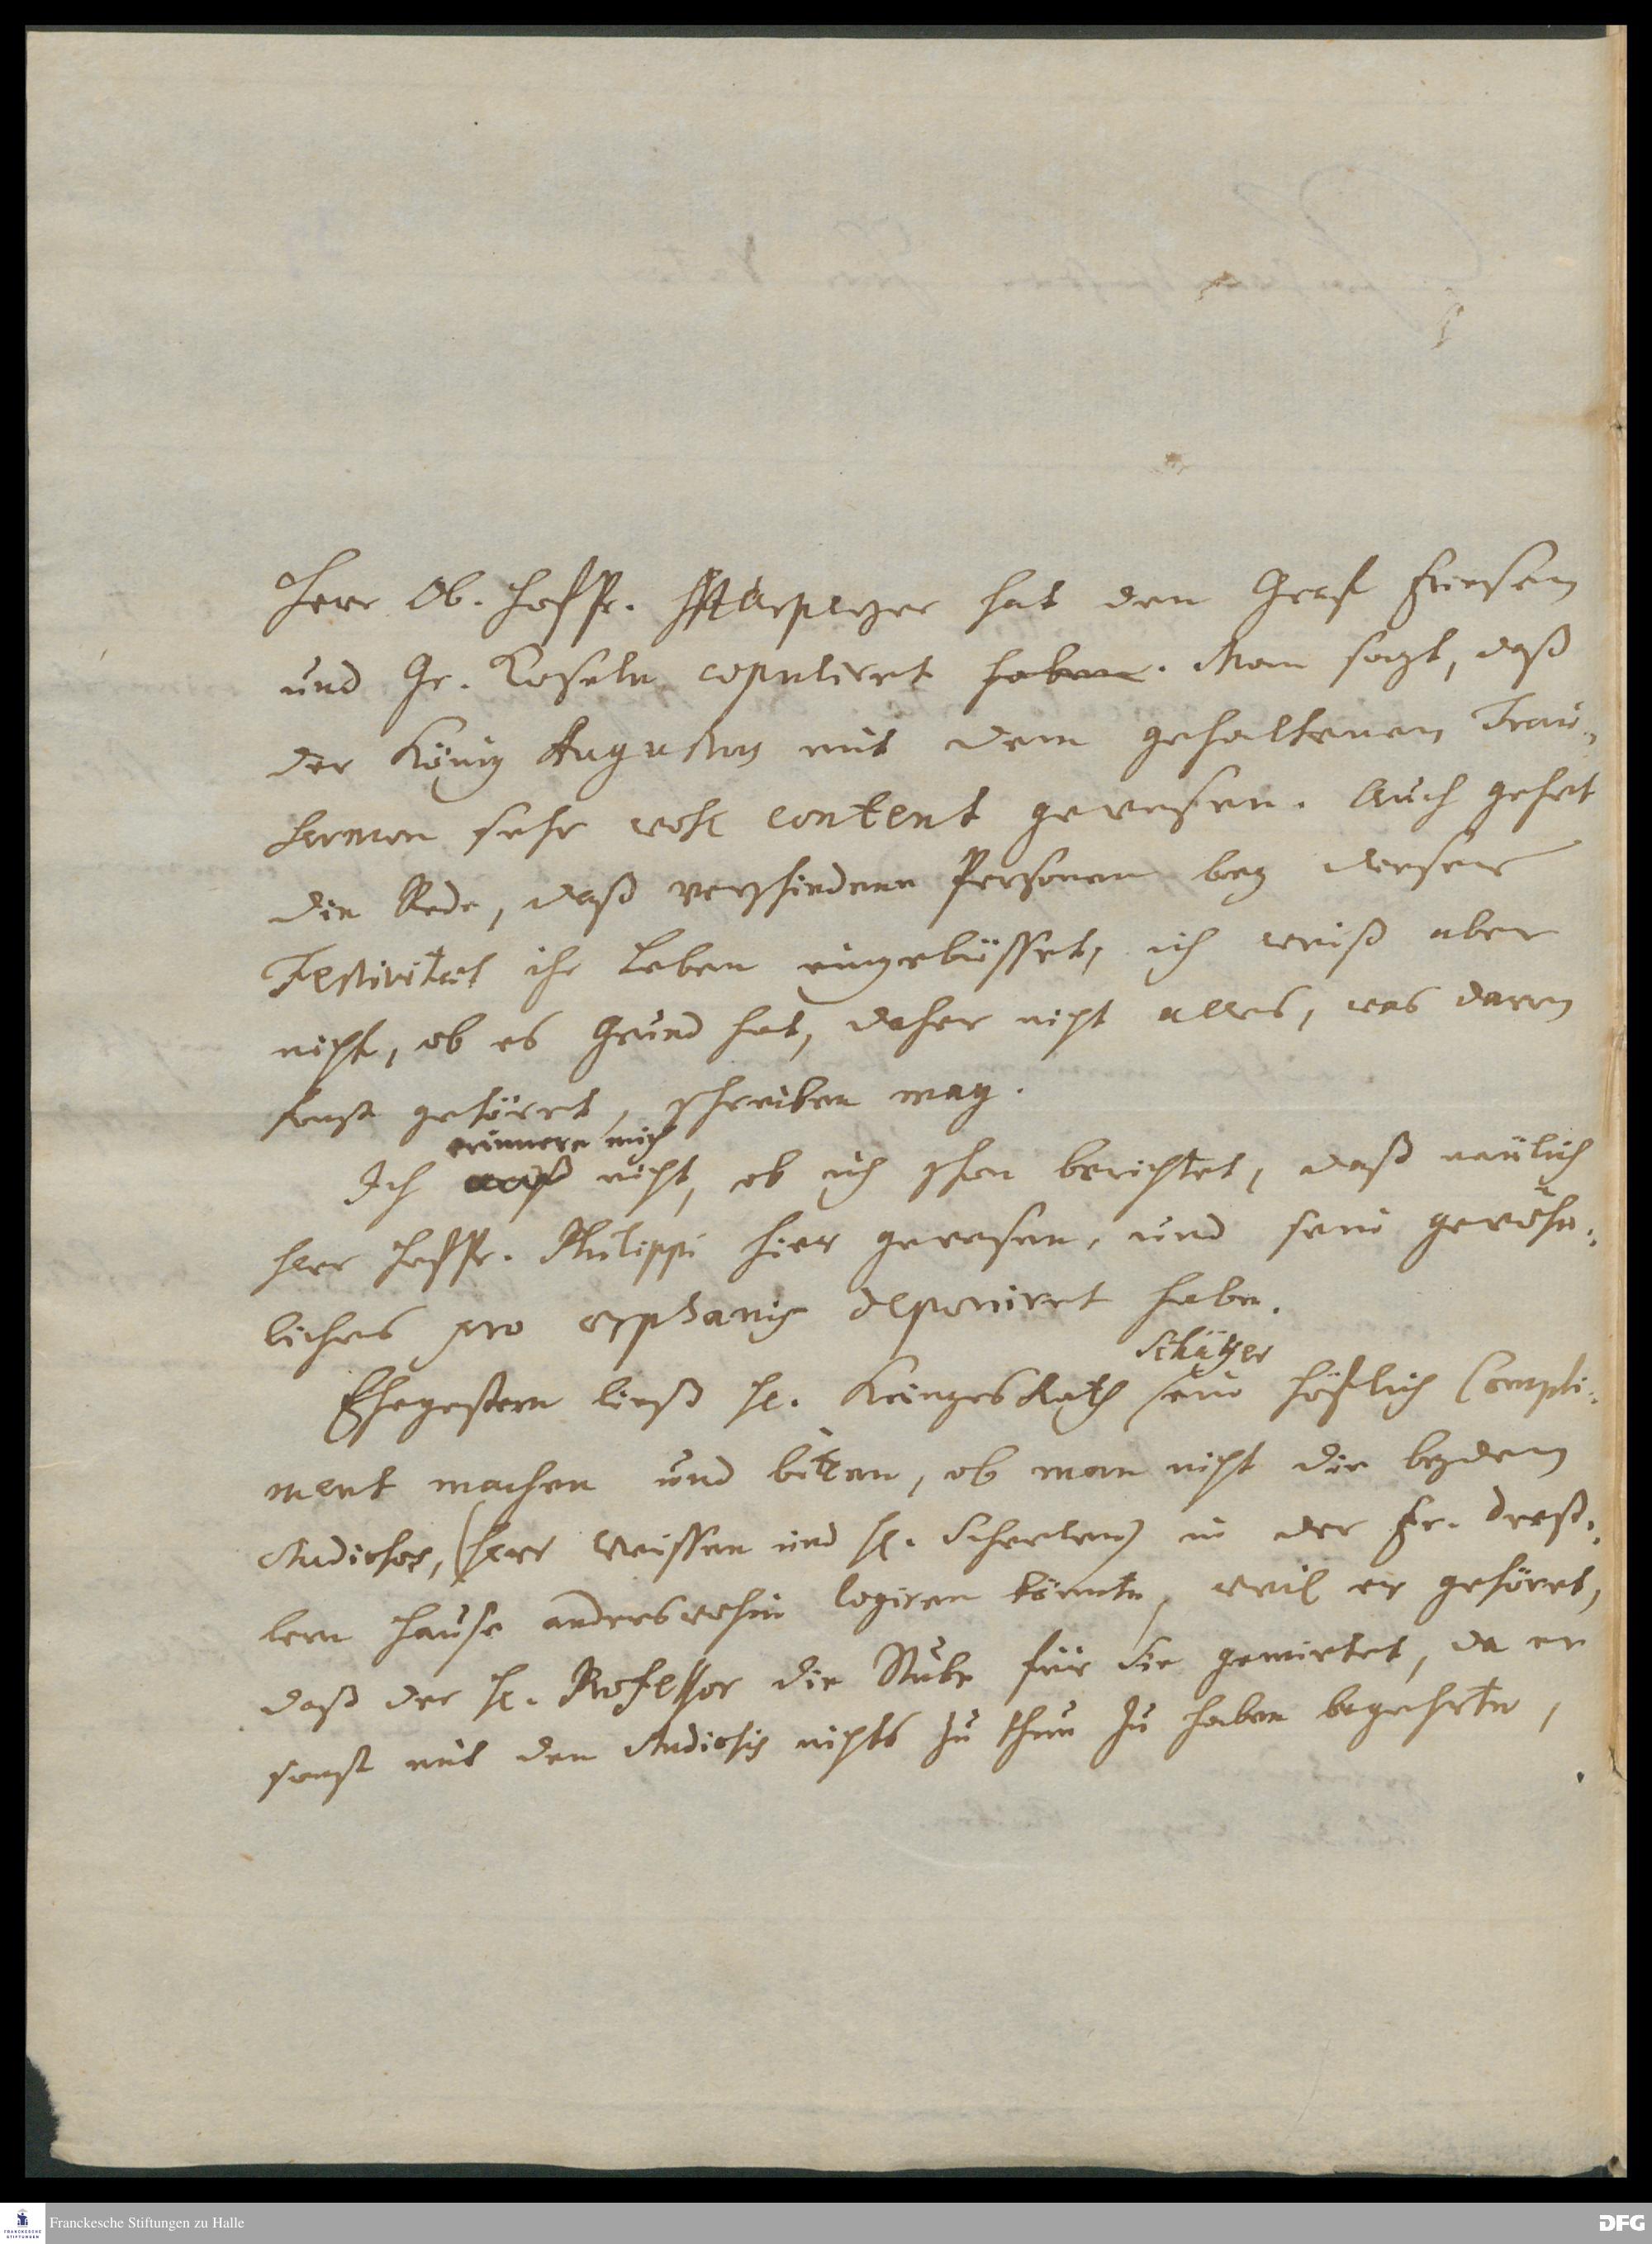 Herr Ob. Hoffpr. Marperger hat den Graf Friesen
und Gr. Coseln copuliret haben. Man sagt, daß
der König Augustus mit dem gehaltenen Trau-
Sermon sehr wohl content gewesen. Auch gehet
die Rede, daß verschiedene Personen bey dieser
Festivitaet ihr Leben eingebüsset, ich weiß aber
nicht, ob es Grund hat, daher nicht alles, was davon
sonst gehöret, schreiben mag.
erinnere mich
Ich weiß nicht, ob ich schon berichtet, daß neulich
Herr Hoffpr. Philippi hier gewesen, und sein gewöhn-
liches pro orphanis deponiret habe.
Schützer
Ehegestern ließ H. KriegesRath sein höflich Compli-
ment machen und bitten, ob man nicht die beyden
Studiosos, (Herr Weissen und H. Scherlen) in der Fr. Dreß-
lern Hause anderswohin logiren könnte, weil er gehöret,
daß der H. Professor die Stube für Sie gemietet, da er
sonst mit den Studiosis nichts zu thun zu haben begehrte,
Franckesche Stiftungen zu Halle
DFG